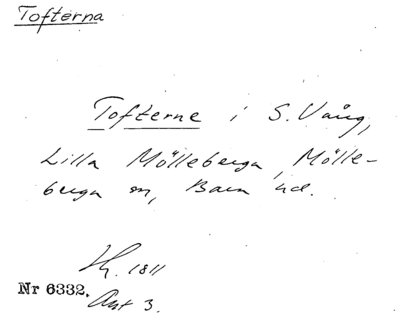 Tofterna
Tofterne i S. Vång,
Lilla Mölleberga, Mölle-
berga sn, Bara hd.
Lh. 1811
Nr 6332.
Akt 3.